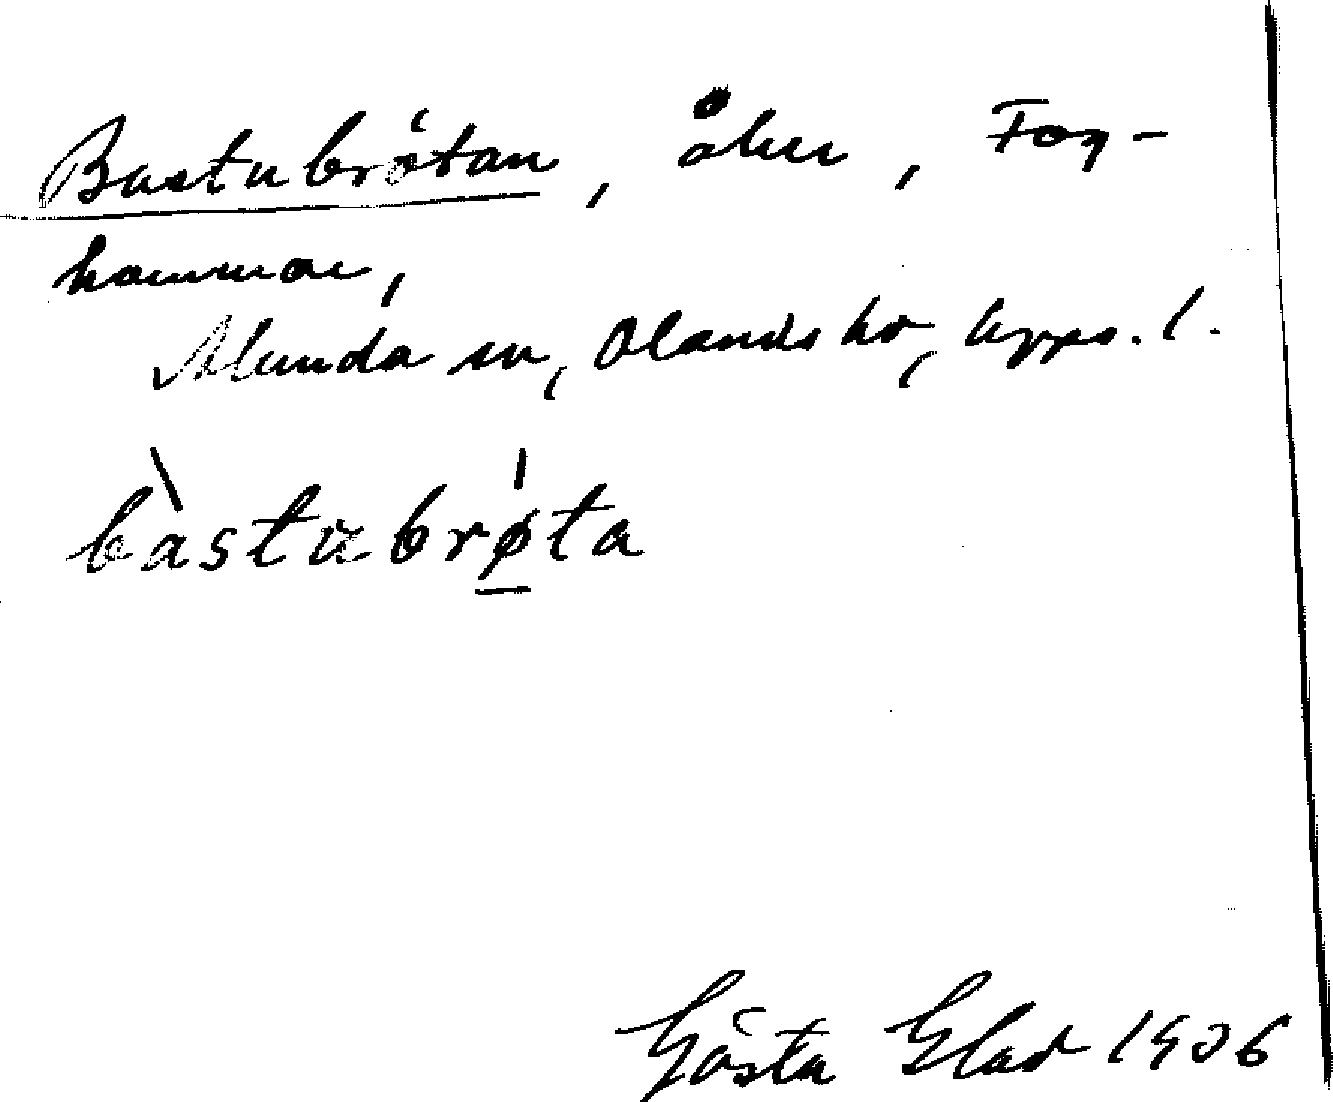 Bastubrötan, åker, Fog-
hammar,
Alunda sn, Olands hd, Upps. l.
bàstubrøta
Gösta Elad 1936